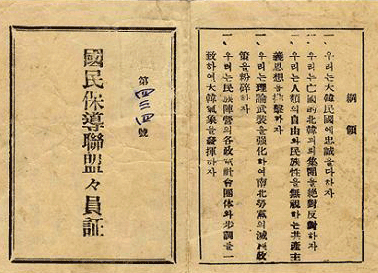 綱領
一、우리는大韓民國에忠誠을다하자
一、우리는亡國的北韓괴뢰集團을絶對反對하자
一、우리는人類의自由와民族性을無視하는共産主
義思想을排擊하자
一、우리는理論武裝을强化하여南北勞黨의滅族政
策을粉碎하자
一、우리는民族陣營의各政黨社會團体와步調를一
致하여大韓氣象을發揮하자
第 號
國民保導聯盟々員証